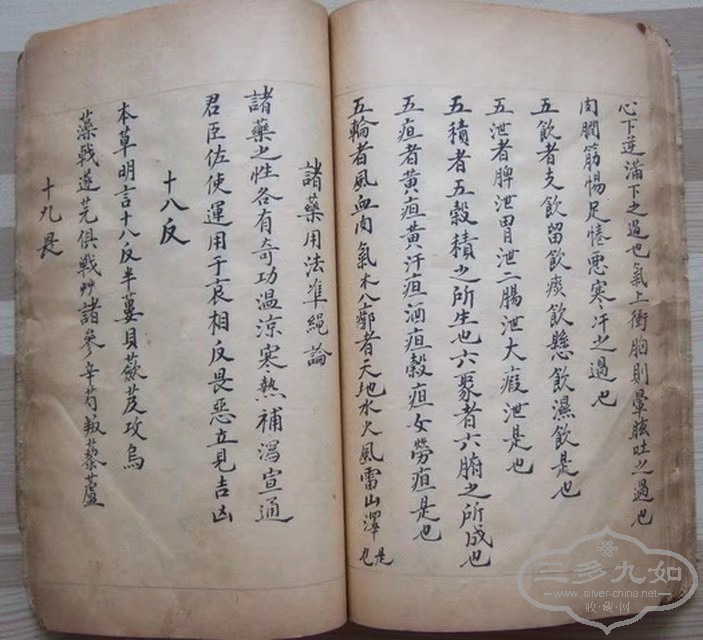 心下逆滿下之過也氣上衝胸則暈眩吐之過也
肉瞤筋惕足惓惡寒汗之過也
五飲者支飲留飲痰飲懸飲濕飲是也
五泄者脾泄胃泄二腸泄大瘕泄是也
五積者五穀積之所生也六聚者六腑之所成也
五疸者黄疸黄汗疸酒疸穀疸女勞疸是也
五輪者風血肉氣木八廓者天地水火風雷山澤是也
諸藥用法准繩論
諸藥之性各有奇功温涼寒熱補瀉宣通
君臣佐使運用于衷相反畏惡立見吉凶
十八反
本草明言十八反半蔞貝蘞芨攻烏
藻戟遂芫俱戰艸諸參辛芍叛藜蘆
十九是
三多九如
www.silver-china.net
收·藏·网